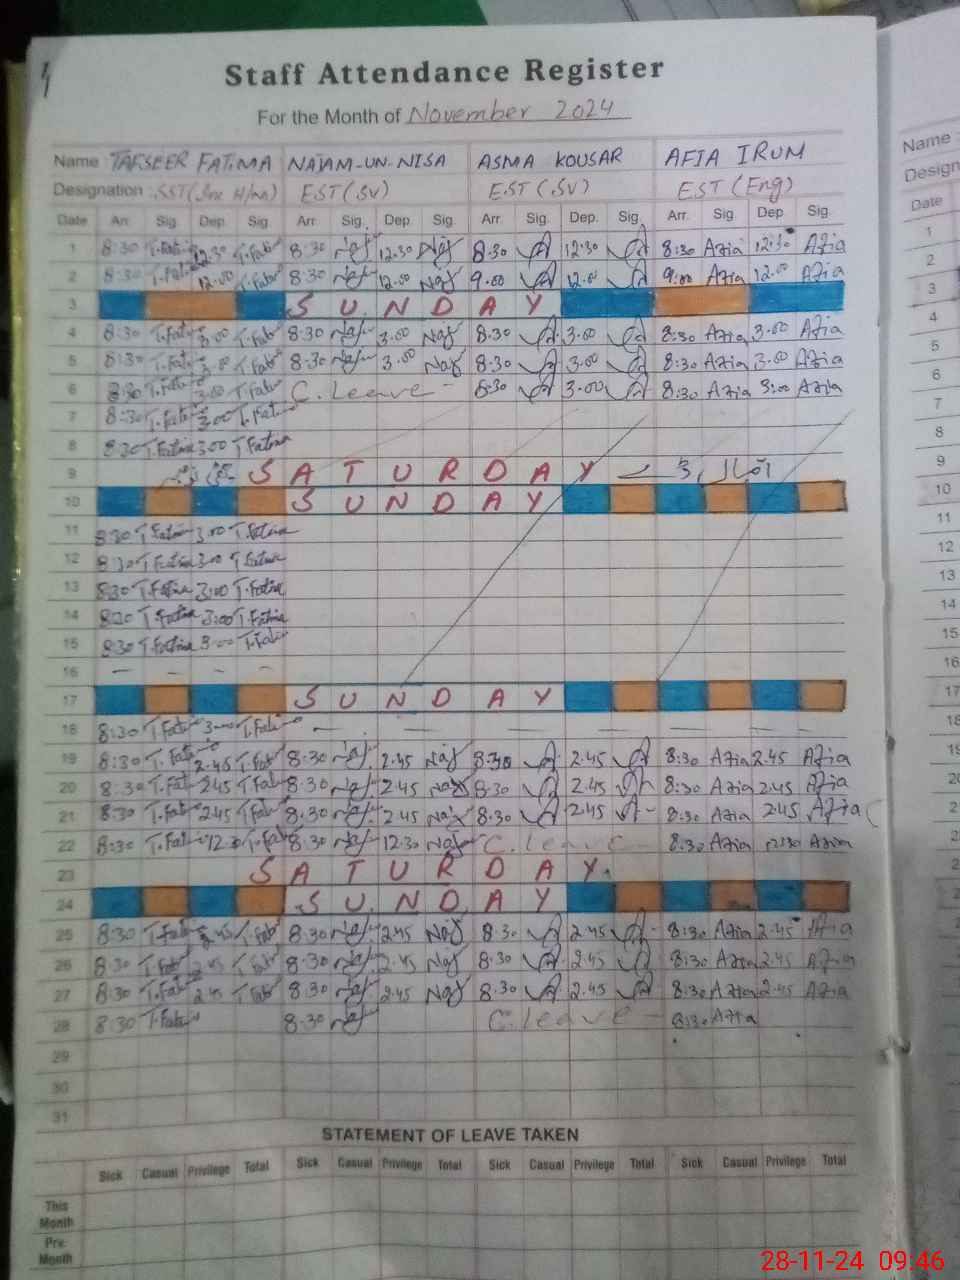 Staff Attendance Register
For the Month of November 2024
Name : TAFSEER FATIMA NAJAM-UN-NISA ASMA KOUSAR AFIA IRUM Name :
Designation : SST EST (SV) EST (SV) EST (Eng)
Date Arr. Sig. Dep. Sig. Arr. Sig. Dep. Sig. Arr. Sig. Dep. Sig. Arr. Sig. Dep. Sig. Date
1 8:30 T.Fatima 12.30 T.Fati 8.30 Naj 12.30 Naj 8.30 12.30 8:30 Azia 12:30 Azia 1
2 8:30 T.Fati 12.00 T.Fati 8.30 Naj 12.00 Naj 9.00 12.00 9:00 Azia 12.00 Azia 2
3 SUNDAY 3
4 8:30 T.Fati 3.00 T.Fati 8.30 Naj 3.00 Naj 8.30 3.00 8:30 Azia 3.00 Azia 4
5 8:30 T.Fati 3.00 T.Fati 8.30 Naj 3.00 Naj 8.30 3.00 8:30 Azia 3.00 Azia 5
6 8:30 T.Fati 3.00 T.Fati C. Leave - 8.30 3.00 8:30 Azia 3:00 Azia 6
7 8:30 T.Fati 3.00 T.Fati 7
8 8:30 T.Fatima 3.00 T.Fatima 8
9 SATURDAY 9
10 SUNDAY 10
11 8:30 T.Fatima 3.00 T.Fatima 11
12 8:30 T.Fatima 3.00 T.Fatima 12
13 8:30 T.Fatima 3:00 T.Fatima 13
14 8:30 T.Fatima 3:00 T.Fatima 14
15 8:30 T.Fatima 3:00 T.Fati 15
16 — — — — 16
17 SUNDAY 17
18 8:30 T.Fati 3:00 T.Fatima — — — — — — 18
19 8:30 T.Fatima 2.45 T.Fati 8.30 Naj 2.45 Naj 8.30 2.45 8:30 Azia 2.45 Azia
20 8:30 T.Fati 2.45 T.Fati 8.30 Naj 2.45 Naj 8.30 2.45 8:30 Azia 2.45 Azia
21 8:30 T.Fati 2.45 T.Fati 8.30 Naj 2.45 Naj 8.30 2.45 8:30 Azia 2.45 Azia
22 8:30 T.Fati 12.30 T.Fati 8.30 Naj 12.30 Naj C. Leave - 8:30 Azia 12:30 Azia
23 SATURDAY
24 SUNDAY
25 8:30 T.Fati 2.45 T.Fati 8.30 Naj 2.45 Naj 8.30 2.45 8:30 Azia 2.45 Azia
26 8:30 T.Fati 2.45 T.Fati 8.30 Naj 2.45 Naj 8.30 2.45 8:30 Azia 2.45 Azia
27 8:30 T.Fati 2.45 T.Fati 8.30 Naj 2.45 Naj 8.30 2.45 8:30 Azia 2.45 Azia
28 8:30 T.Fatima 8.30 Naj C. Leave - 8:30 Azia
29
30
31
STATEMENT OF LEAVE TAKEN
Sick Casual Privilege Total Sick Casual Privilege Total Sick Casual Privilege Total Sick Casual Privilege Total
This Month
Pre. Month
28-11-24 09:46